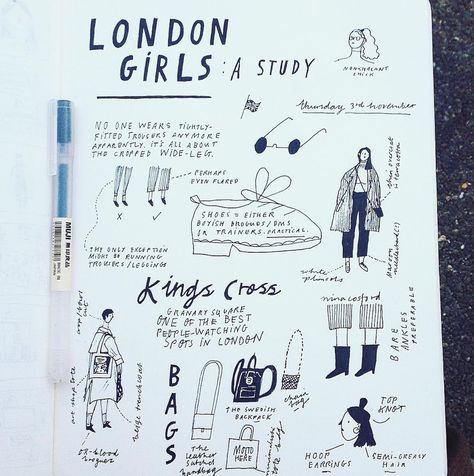 LONDON
GIRLS: A STUDY
NONCHALANT
CHICK
Thursday 3rd November
NO ONE WEARS TIGHTLY-
FITTED TROUSERS ANYMORE
APPARENTLY. IT'S ALL ABOUT
THE CROPPED WIDE-LEG.
PERHAPS
EVEN FLARED
X ✓
THE ONLY EXCEPTION
MIGHT BE RUNNING
TROUSERS/LEGGINGS
SHOES = EITHER
BOYISH BROGUES/DMS
OR TRAINERS. PRACTICAL.
thin overcoat
in terracotta
maroon
white plimsols
MUJI
Kings Cross
GRANARY SQUARE
ONE OF THE BEST
PEOPLE-WATCHING
SPOTS IN LONDON
nina cosford
BARE
ANKLES
PREFERABLE
cut
art shop tote
beige trenchcoat
ox-blood
brogues
BAGS
the
leather
satchel
handbag
THE SWEDISH
BACKPACK
MOTTO
HERE
chain
bag
TOP
KNOT
HOOP
EARRINGS
SEMI-GREASY
HAIR